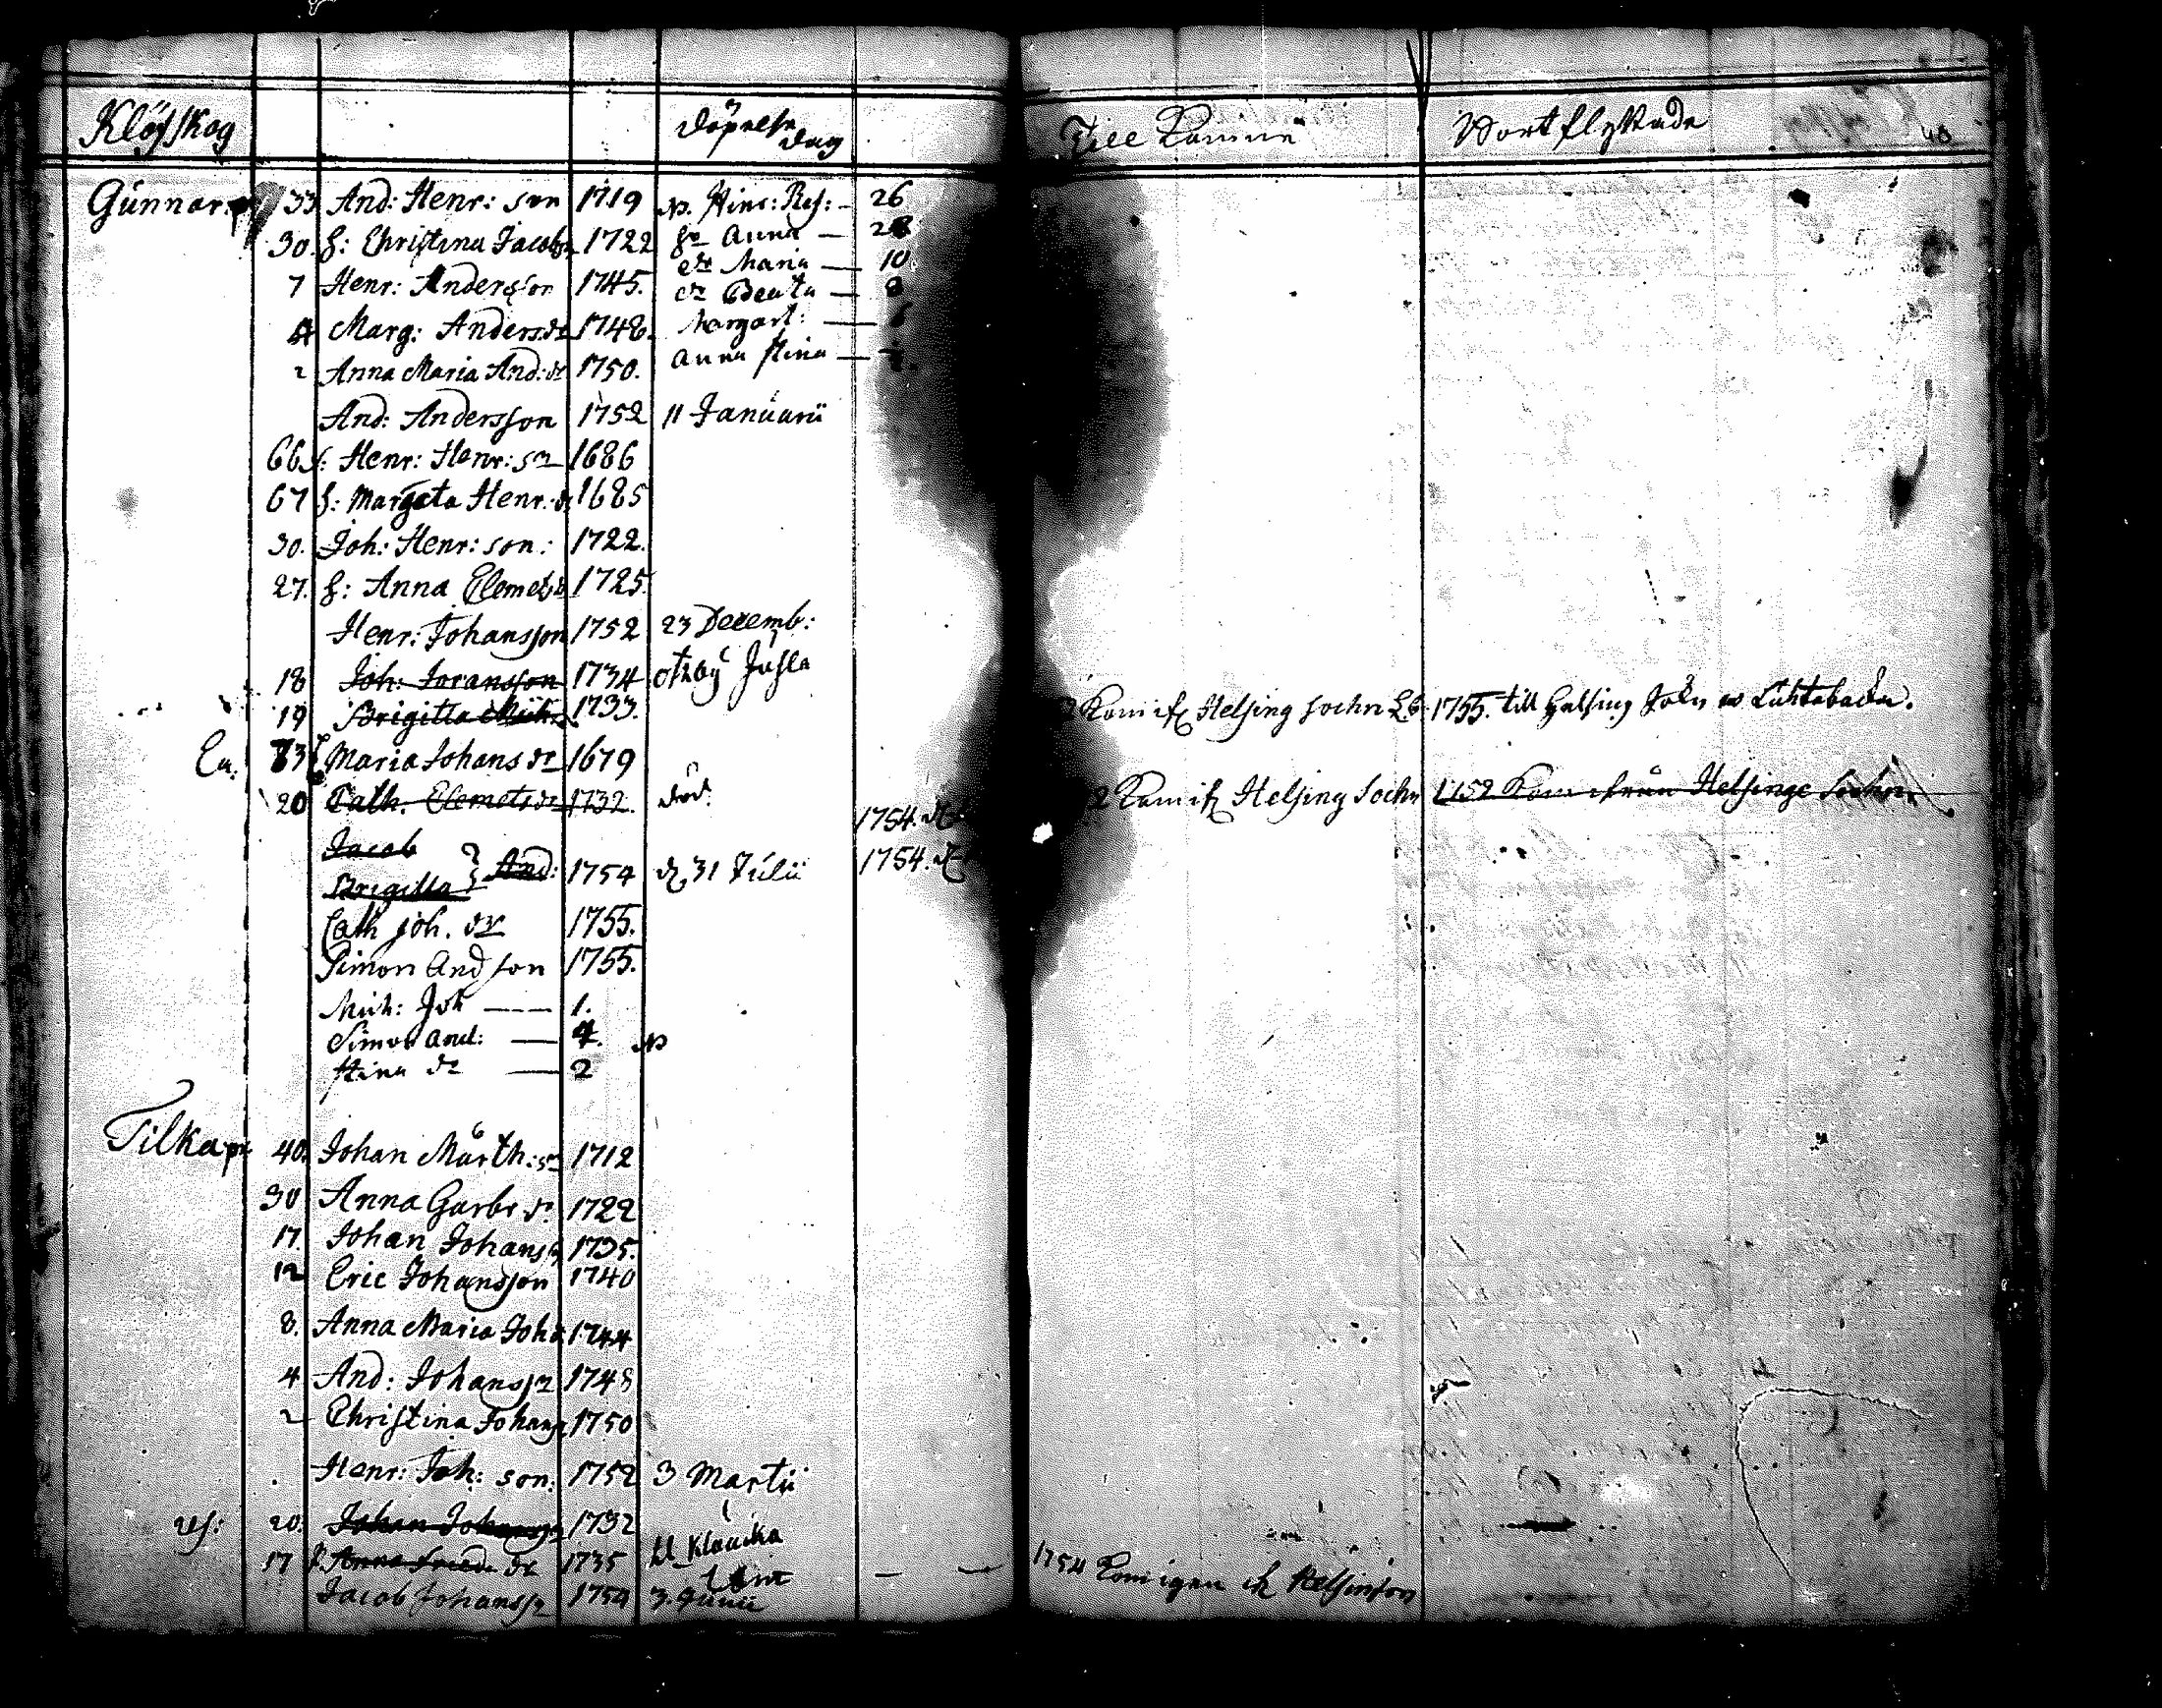 Klöfskog Döpelse dag Till Komne Bortflyttade 40
Gunnars 33 And: Henr: son 1719 26
30. h: Christina Jacobs 1722 Anna — 28
Maria — 10
7 Henr: Andersson 1745. Beata — 8
4 Marg: Andersdr 1748. Margart: —
2 Anna Maria And: dr 1750. Anna Stina —
And: Andersson 1752 11 Januarii
66 f: Henr: Henr: sn 1686
67 h: Margeta Henr: dr 1685
30. Joh: Henr: son: 1722.
27. h: Anna Clemetsd 1725.
Henr: Johansson 1752 23 Decemb:
18 Joh: Joransson 1734
19 Brigitta Mich: 1733. Kom ifr Helsing sochn 1755. till Helsing
En. 73 Maria Johans dr 1679
20 Cath. Clemetsdr 1732. död. Kom ifr Helsing Sochn 1752 Kom ifrån Helsinge Sochn
1754.
Jacob
Brigitta } And: 1754 d. 31 Julii 1754.
Cath Joh. dr 1755.
Simon And son 1755.
Mich: Joh — 1.
Simon And: — 4.
Stina dr — 2
Tilka 40. Johan Mårth: sn 1712
30 Anna Gabr dr 1722
17. Johan Johanss 1735.
12 Eric Johansson 1740
8. Anna Maria Joh 1744
4 And: Johanssn 1748
2 Christina Johans 1750
Henr: Joh: son: 1752 3 Martii
20. Johan Johanss 1732
17 Anna dr 1735
1754 Kom igen
Jacob Johanssn 1754 3. Junii